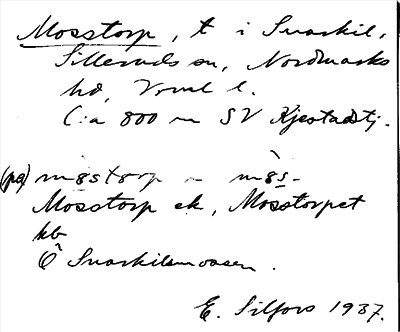 Mosstorp, t i Svarkil,
Silleruds sn, Nordmarks
hd, Vrml l.
C:a 800 m SV Kjestadstj.
(på) møstørp - møs-
Mosstorp ek, Mosstorpet
kb
Ô Svarkilsmossen.
E. Silfors 1937.